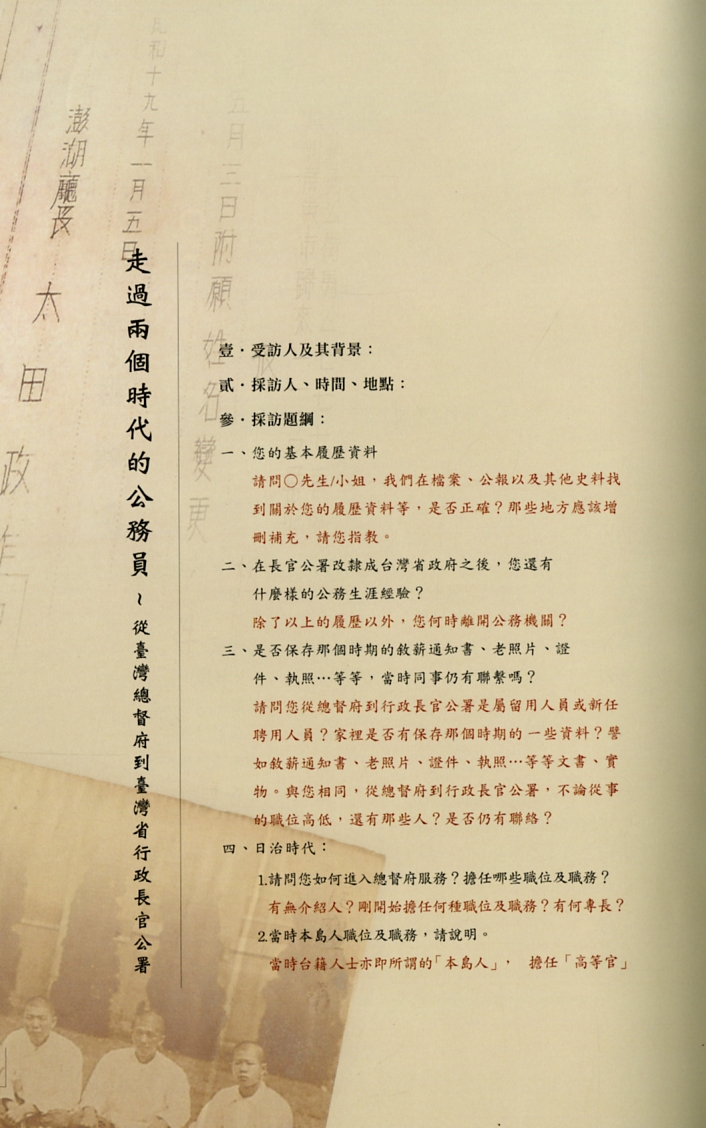 昭和十九年一月五日
澎湖廳長 太田政
五月三日附願姓名變更
走過兩個時代的公務員~從臺灣總督府到臺灣省行政長官公署
壹·受訪人及其背景：
貳·採訪人、時間、地點：
參·採訪題綱：
一、您的基本履歷資料
請問○先生/小姐，我們在檔案、公報以及其他史料找
到關於您的履歷資料等，是否正確？那些地方應該增
刪補充，請您指教。
二、在長官公署改隸成台灣省政府之後，您還有
什麼樣的公務生涯經驗？
除了以上的履歷以外，您何時離開公務機關？
三、是否保存那個時期的敘薪通知書、老照片、證
件、執照…等等，當時同事仍有聯繫嗎？
請問您從總督府到行政長官公署是屬留用人員或新任
聘用人員？家裡是否有保存那個時期的一些資料？譬
如敘薪通知書、老照片、證件、執照…等等文書、實
物。與您相同，從總督府到行政長官公署，不論從事
的職位高低，還有那些人？是否仍有聯絡？
四、日治時代：
1.請問您如何進入總督府服務？擔任哪些職位及職務？
有無介紹人？剛開始擔任何種職位及職務？有何專長？
2.當時本島人職位及職務，請說明。
當時台籍人士亦即所謂的「本島人」， 擔任「高等官」